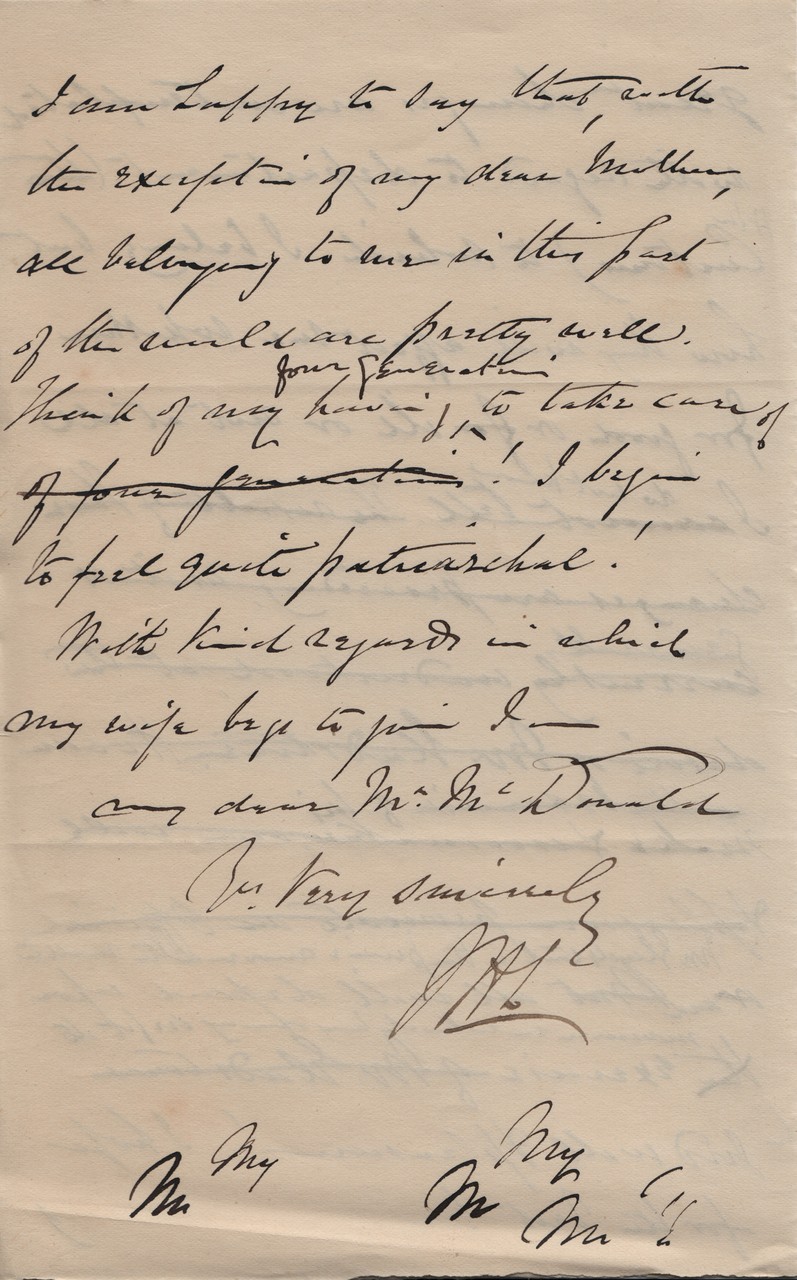 I am happy to say that, with
the exception of my dear Mother,
all belonging to me in this part
of the world are pretty well.
four generations
Think of my having to take care of
of four generations! I begin
to feel quite patriarchal!
With kind regards in which
my wife begs to join I am
my dear Mr. McDonald
Yrs. Very sincerely
JHL
My My
Mr M Mr